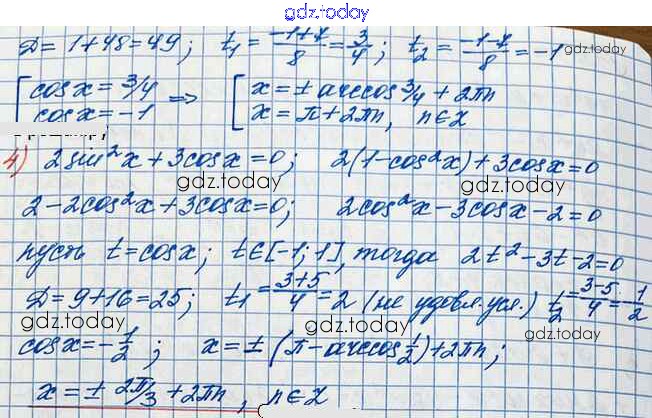 gdz.today
D = 1+48 = 49; t₁ = (-1+7)/8 = 3/4; t₂ = (-1-7)/8 = -1 gdz.today
[cosx = 3/4 => [x = ± arccos 3/4 + 2πn
[cosx = -1 [x = π + 2πn, n∈Z
4) 2sin²x + 3cosx = 0; 2(1-cos²x) + 3cosx = 0
gdz.today gdz.today
2 - 2cos²x + 3cosx = 0; 2cos²x - 3cosx - 2 = 0
пусть t = cosx; t∈[-1; 1], тогда 2t² - 3t - 2 = 0
D = 9+16 = 25; t₁ = (3+5)/4 = 2 (не удовл. усл.) t₂ = (3-5)/4 = -1/2
gdz.today gdz.today gdz.today
cosx = -1/2; x = ± (π - arccos 1/2) + 2πn;
x = ± 2π/3 + 2πn, n∈Z